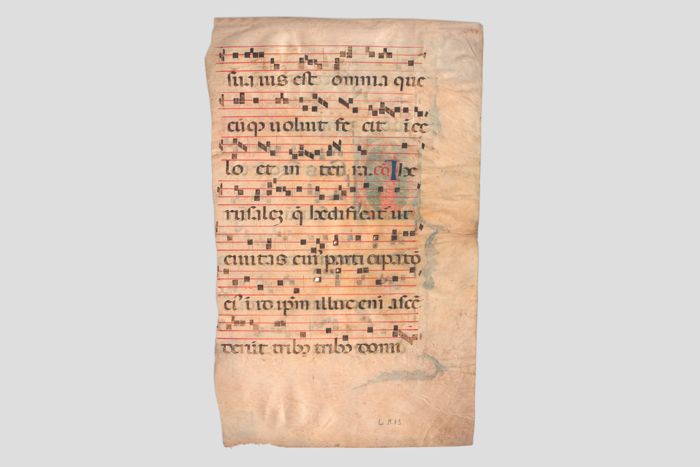 sua uis est omnia que
cūqꝫ uoluit fe cit ī ce
lo et in ter ra. cō Ihe
rusaleꝫ q̄ hedificat̄ ut
ciuitas cui' parti cipatō
ei' ī id ip̄m illuc eni ascē
derūt tribꝫ tribꝫ domi